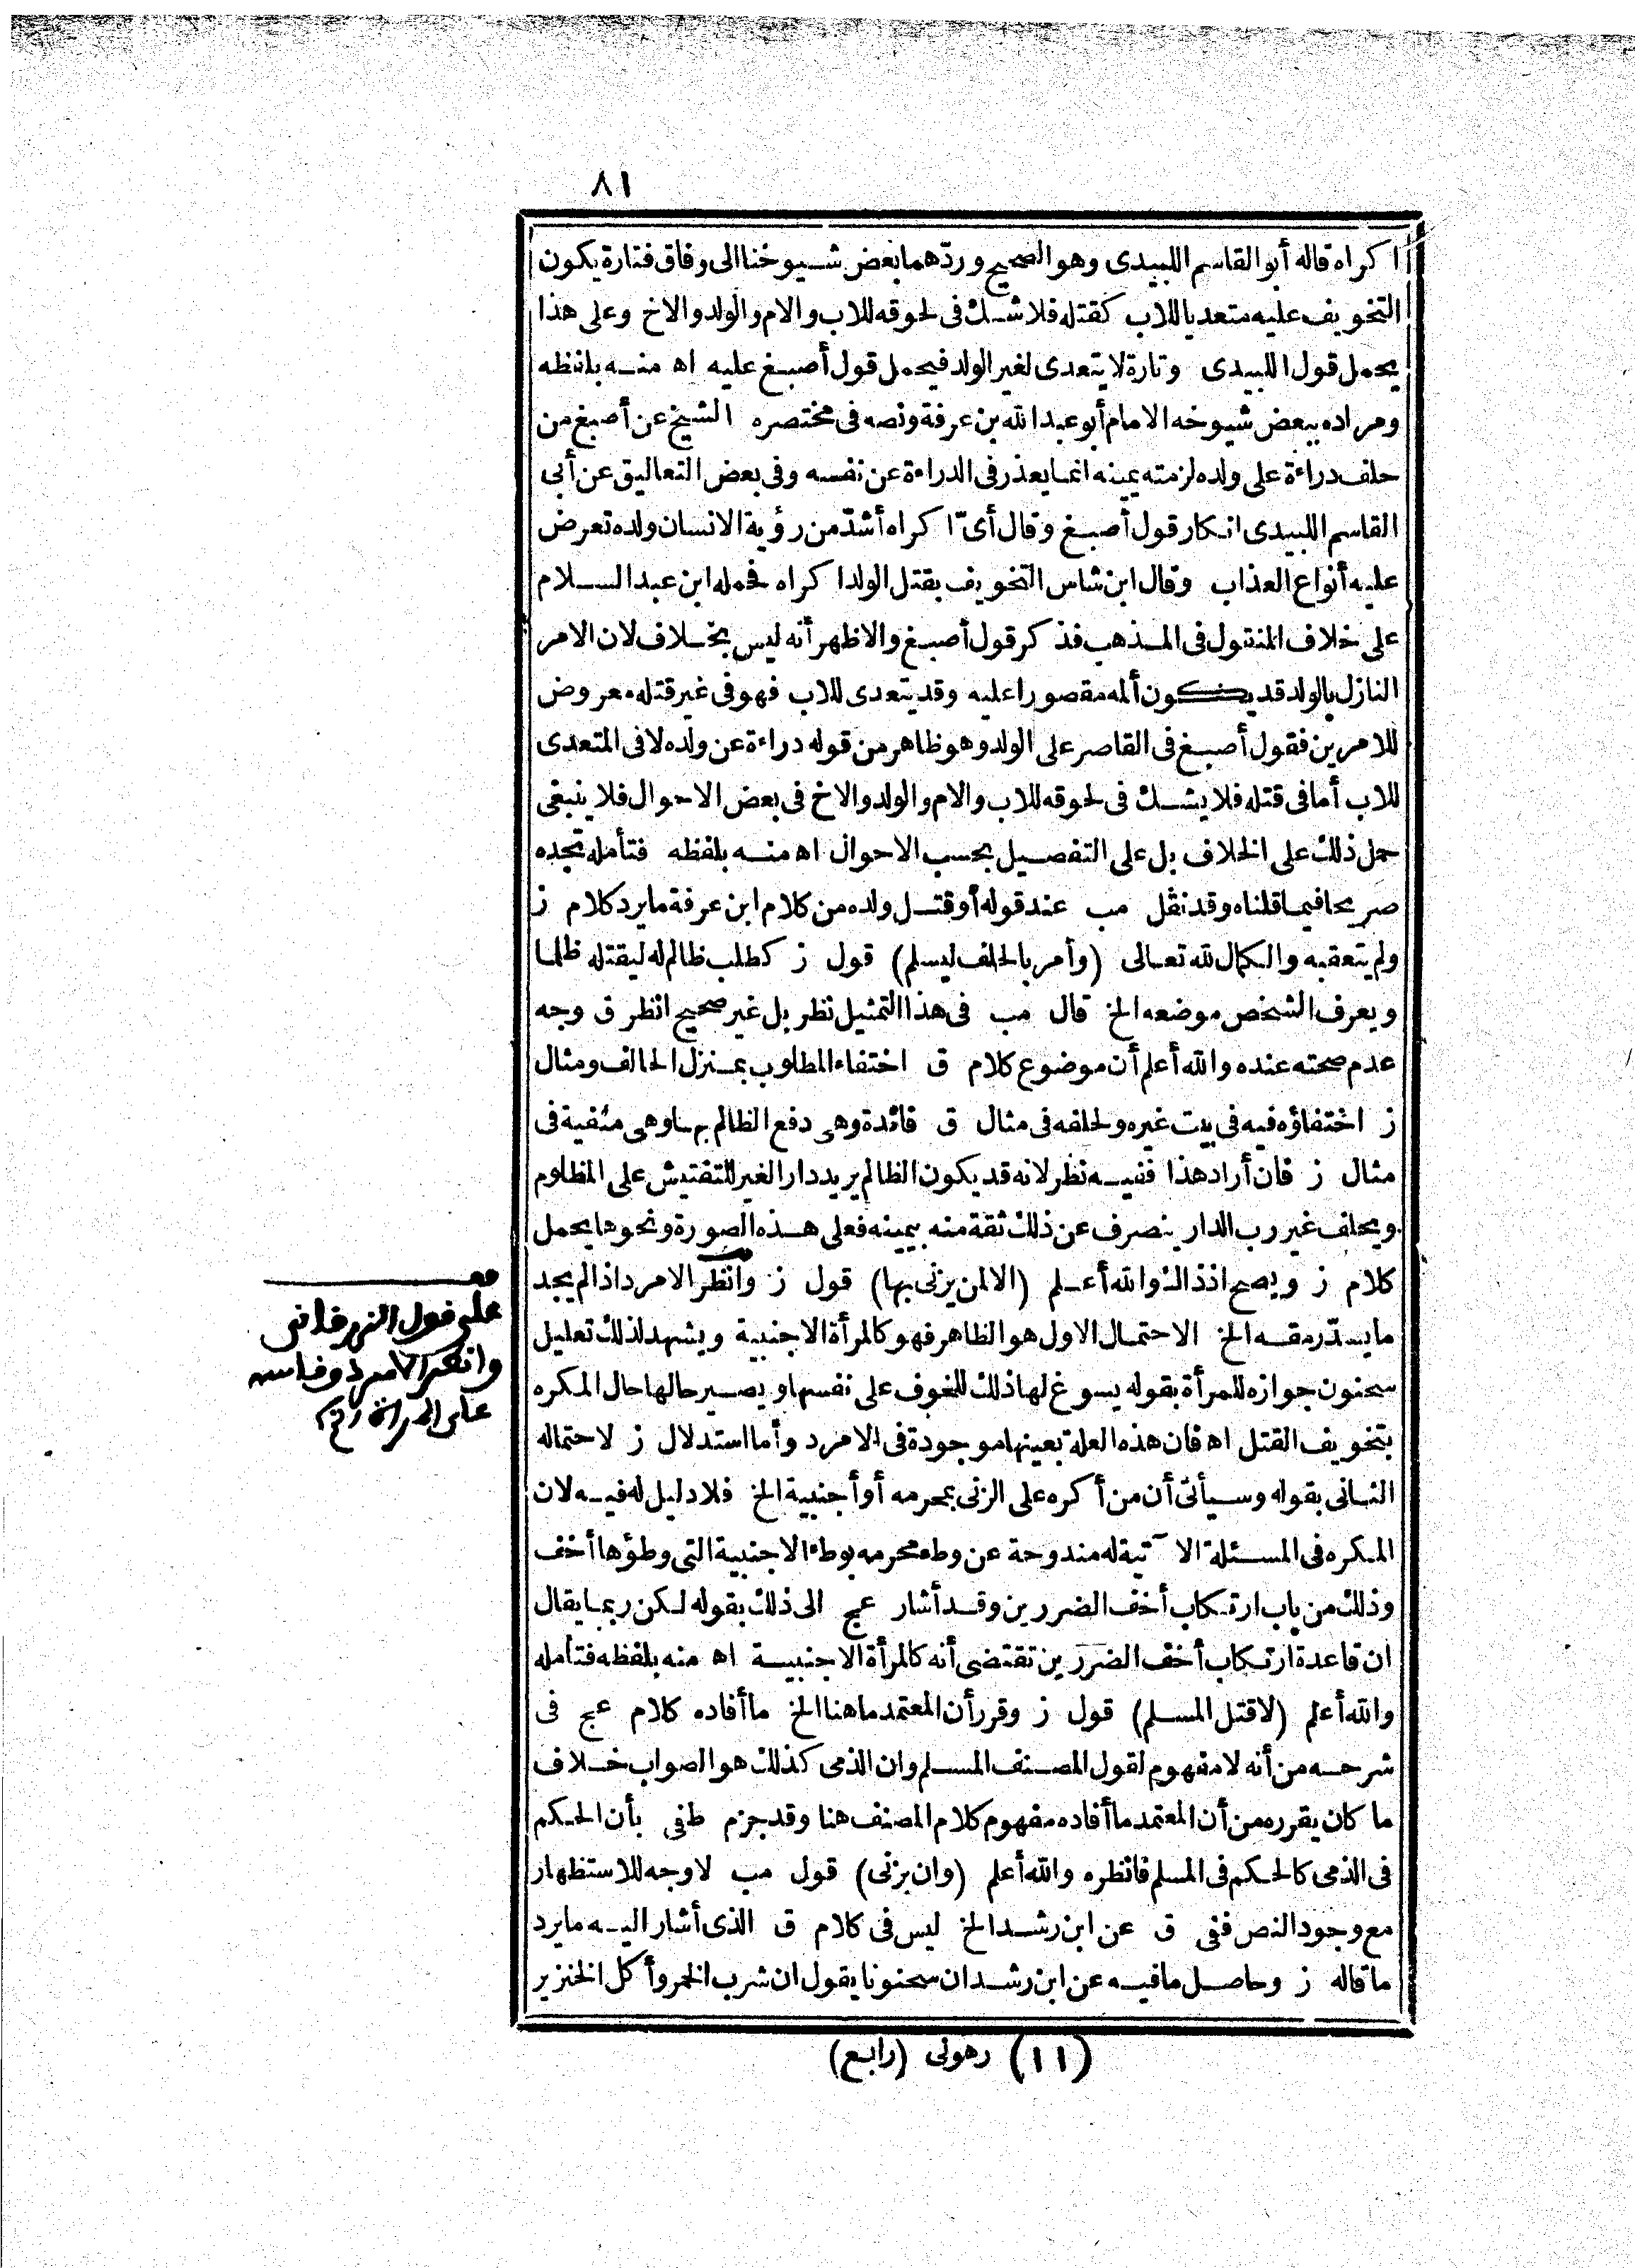 ٨١
اكراه قاله أبو القاسم اللبيدى وهو الصحيح وردّهما بعض شيوخنا الى وفاق فتارة يكون
التخويف عليه متعديا للاب كقتله فلا شك فى لحوقه للاب والام والولد والاخ وعلى هذا
يحمل قول اللبيدى وتارة لا يتعدى لغير الولد فيحمل قول أصبغ عليه اه منه بلفظه
ومراده ببعض شيوخه الامام أبو عبد الله بن عرفة ونصه فى مختصره الشيخ عن أصبغ من
حلف دراءة على ولده لزمته يمينه انما يعذر فى الدراءة عن نفسه وفى بعض التعاليق عن أبى
القاسم اللبيدى انكار قول أصبغ وقال أىّ اكراه أشدّ من رؤية الانسان ولده تعرض
عليه أنواع العذاب وقال ابن شاس التخويف بقتل الولد اكراه فحمله ابن عبد السلام
على خلاف المنقول فى المذهب فذكر قول أصبغ والاظهر أنه ليس بخلاف لان الامر
النازل بالولد قد يكون ألمه مقصورا عليه وقد يتعدى للاب فهو فى غير قتله معروض
للامرين فقول أصبغ فى القاصر على الولد وهو ظاهر من قوله دراءة عن ولده لا فى المتعدى
للاب أما فى قتله فلا يشك فى لحوقه للاب والام والولد والاخ فى بعض الاحوال فلا ينبغى
حمل ذلك على الخلاف بل على التفصيل بحسب الاحوال اه منه بلفظه فتأمله تجده
صريحا فيما قلناه وقد نقل مب عند قوله أو قتل ولده من كلام ابن عرفة ما يرد كلام ز
ولم يتعقبه والكمال لله تعالى (وأمر بالحلف ليسلم) قول ز كطلب ظالم له ليقتله ظلما
ويعرف الشخص موضعه الخ قال مب فى هذا التمثيل نظر بل غير صحيح انظر ق وجه
عدم صحته عنده والله أعلم أن موضوع كلام ق اختفاء المطلوب بمنزل الحالف ومثال
ز اختفاؤه فيه فى بيت غيره ولحلفه فى مثال ق فائدة وهى دفع الظالم بها وهى منفية فى
مثال ز فان أراد هذا ففيه نظر لانه قد يكون الظالم يريد دار الغير للتفتيش على المظلوم
ويحلف غير رب الدار ينصرف عن ذلك ثقة منه بيمينه فعلى هذه الصورة ونحوها يحمل
كلام ز ويصح اذذاك والله أعلم (الا لمن يزنى بها) قول ز وانظر الامرد اذا لم يجد
ما يسدّ رمقه الخ الاحتمال الاول هو الظاهر فهو كالمرأة الاجنبية ويشهد لذلك تعليل
سحنون جوازه للمرأة بقوله يسوغ لها ذلك للخوف على نفسها ويصير حالها حال المكره
بتخويف القتل اه فان هذه العلة بعينها موجودة فى الامرد وأما استدلال ز لاحتماله
الثانى بقوله وسيأتى أن من أكره على الزنى بمحرمه أو أجنبية الخ فلا دليل له فيه لان
المكره فى المسئلة الآتية له مندوحة عن وطء محرمه بوطء الاجنبية التى وطؤها أخف
وذلك من باب ارتكاب أخف الضررين وقد أشار عج الى ذلك بقوله لكن ربما يقال
ان قاعدة ارتكاب أخف الضررين تقتضى أنه كالمرأة الاجنبية اه منه بلفظه فتأمله
والله أعلم (لا قتل المسلم) قول ز وقرر أن المعتمد ما هنا الخ ما أفاده كلام عج فى
شرحه من أنه لا مفهوم لقول المصنف المسلم وان الذمى كذلك هو الصواب خلاف
ما كان يقرره من أن المعتمد ما أفاده مفهوم كلام المصنف هنا وقد جزم طفى بأن الحكم
فى الذمى كالحكم فى المسلم فانظره والله أعلم (وان يزنى) قول مب لا وجه للاستظهار
مع وجود النص ففى ق عن ابن رشد الخ ليس فى كلام ق الذى أشار اليه ما يرد
ما قاله ز وحاصل ما فيه عن ابن رشد ان سحنونا يقول ان شرب الخمر وأكل الخنزير
(١١) رهونى (رابع)
على قول الزرقانى
وانظر الامرد وقاسه
على المرأة